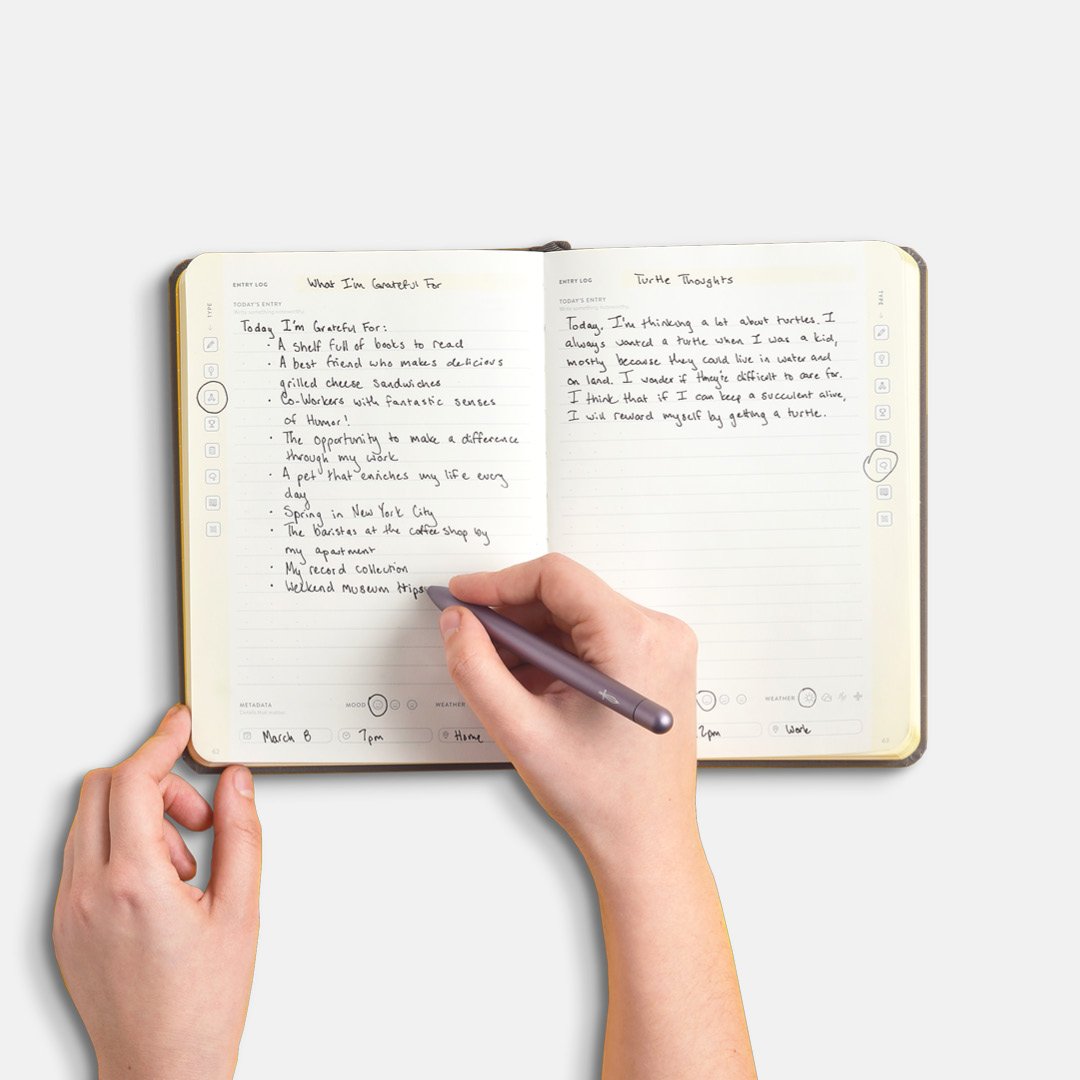 ENTRY LOG
What I'm Grateful For
TODAY'S ENTRY
Write something noteworthy
TYPE
Today I'm Grateful For:
• A shelf full of books to read
• A best friend who makes delicious
grilled cheese sandwiches
• Co-Workers with fantastic senses
of Humor!
• The opportunity to make a difference
through my work
• A pet that enriches my life every
day
• Spring in New York City
• The baristas at the coffee shop by
my apartment
• My record collection
• Weekend museum trips
METADATA
MOOD
WEATHER
March 8
7pm
Home
62
ENTRY LOG
Turtle Thoughts
TODAY'S ENTRY
Write something noteworthy
TYPE
Today, I'm thinking a lot about turtles. I
always wanted a turtle when I was a kid,
mostly because they could live in water and
on land. I wonder if they're difficult to care for.
I think that if I can keep a succulent alive,
I will reward myself by getting a turtle.
WEATHER
2pm
Work
63